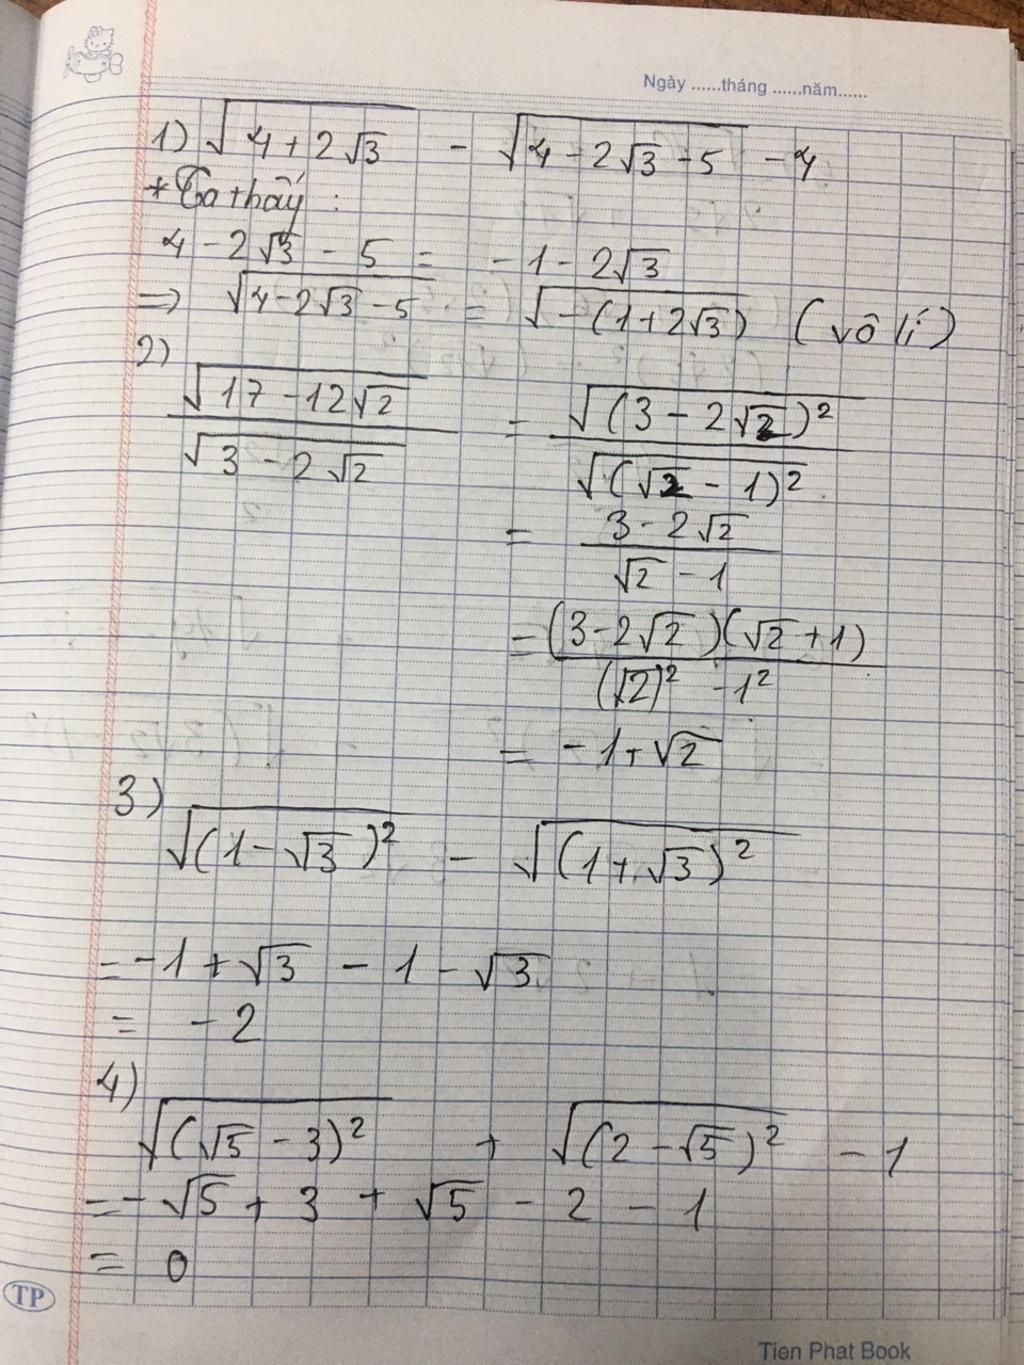 Ngày ......tháng ......năm......
1) √(4 + 2√3) - √(4 - 2√3 - 5) - 4
* Ta thấy :
4 - 2√3 - 5 = -1 - 2√3
=> √(4 - 2√3 - 5) = √(-(1 + 2√3)) (vô lí)
2)
√(17 - 12√2) / √(3 - 2√2) = √((3 - 2√2)²) / √((√2 - 1)²)
= (3 - 2√2) / (√2 - 1)
= (3 - 2√2)(√2 + 1) / ((√2)² - 1²)
= -1 + √2
3)
√((1 - √3)²) - √((1 + √3)²)
= -1 + √3 - 1 - √3
= -2
4)
√((√5 - 3)²) + √((2 - √5)²) - 1
= -√5 + 3 + √5 - 2 - 1
= 0
TP
Tien Phat Book